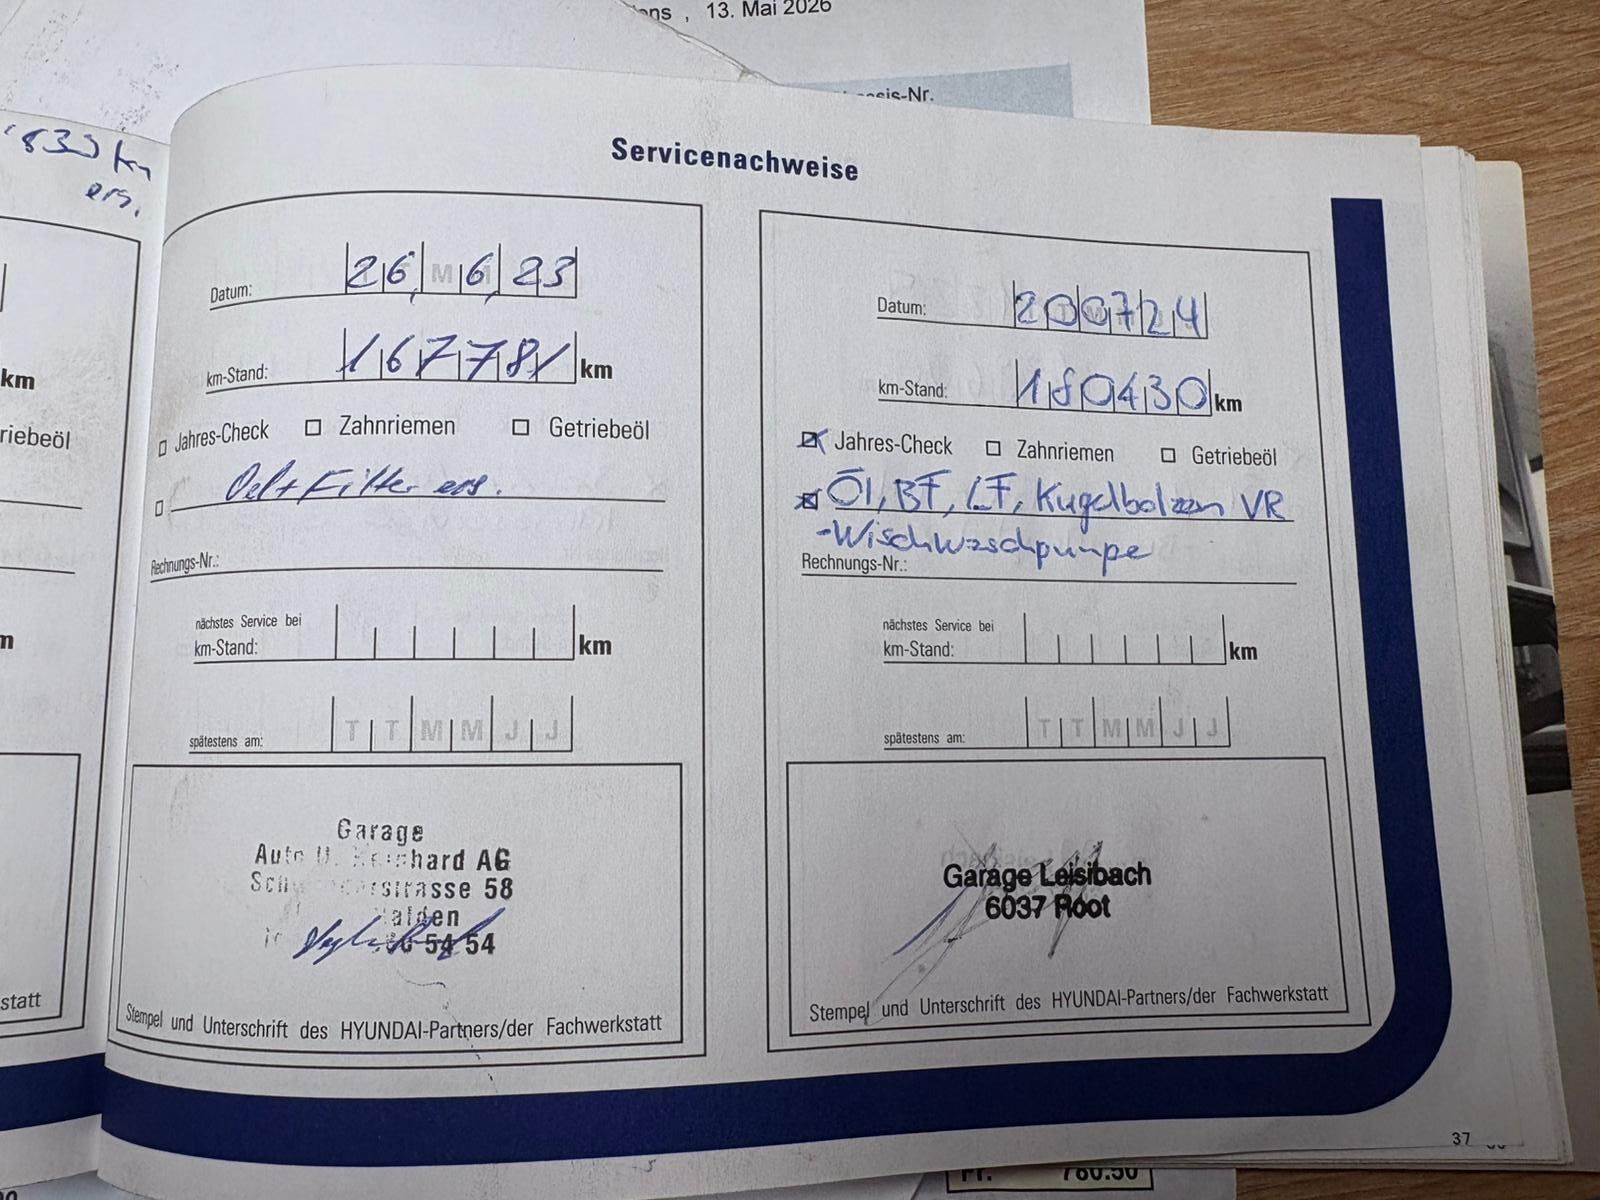 13. Mai 2026
sis-Nr.
Servicenachweise
km
ers.
km
riebeöl
statt
Datum: 26.6.23
km-Stand: 167781 km
Jahres-Check Zahnriemen Getriebeöl
Oel+Filter ers.
Rechnungs-Nr.:
nächstes Service bei
km-Stand: km
spätestens am: T T M M J J
Garage
Auto hard AG
strasse 58
alden
54 54
Stempel und Unterschrift des HYUNDAI-Partners/der Fachwerkstatt
Datum: 200724
km-Stand: 180430 km
Jahres-Check Zahnriemen Getriebeöl
Öl, BF, LF, Kugelbolzen VR
-Wischwaschpumpe
Rechnungs-Nr.:
nächstes Service bei
km-Stand: km
spätestens am: T T M M J J
Garage Leisibach
6037 Root
Stempel und Unterschrift des HYUNDAI-Partners/der Fachwerkstatt
37
Fr. 780.50